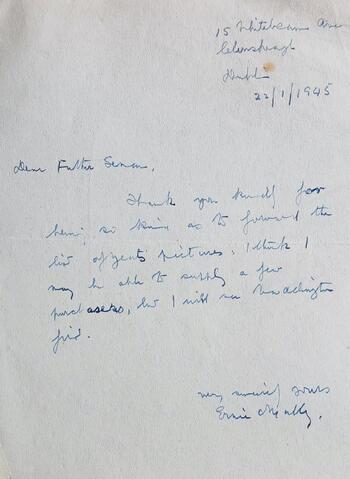 15 Whitebeam Ave
Clonskeagh
Dublin
22/1/1945
Dear Father Senan,
Thank you kindly for
being so kind as to forward the
list of Jack's pictures. I think I
may be able to supply a few
purchasers, but I will see Waddington
first.
very sincerely yours
Ernie O'Malley.